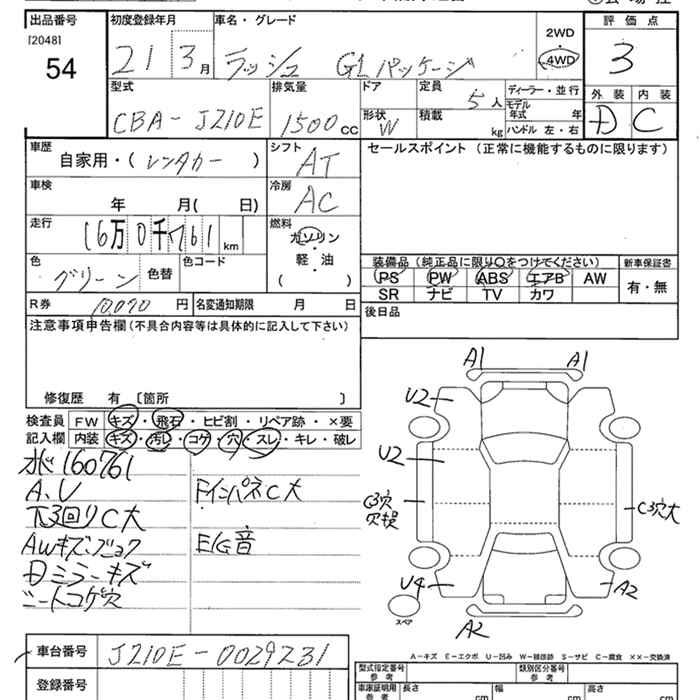 出品番号 初度登録年月 車名・グレード 2WD 評価点
[2048]
54 21 3月 ラッシュ G Lパッケージ 4WD 3
型式 排気量 ドア 定員 ディーラー・並行 外装 内装
CBA-J210E 1500cc 5人 モデル年式 年 D C
形状 W 積載 kg ハンドル 左・右
車歴 シフト セールスポイント (正常に機能するものに限ります)
自家用・(レンタカー) AT
車検 冷房
年 月( 日) AC
走行 燃料
16万0千761km ガソリン・軽・油
( )
色 色替 色コード 装備品 (純正品に限り○をつけてください) 新車保証書
グリーン PS PW ABS エアB AW 有・無
SR ナビ TV カワ
R券 10,070円 名変通知期限 月 日 後日品
注意事項申告欄(不具合内容等は具体的に記入して下さい)
修復歴 有 [箇所 ]
検査員 FW キズ・飛石・ヒビ割・リペア跡・×要
記入欄 内装 キズ・汚レ・コゲ・穴・スレ・キレ・破レ
160761
A、U FインパネC大
下回りC大
AWキズ E/G音
ミラーキズ
シートコゲ穴
A1 A1
U2
U2
C3穴 C3穴大
穴損
U4 A2
スペア
A2
A-キズ E-エクボ U-凹み W-補修跡 S-サビ C-腐食 ××-交換済
車台番号 J210E-0029231
登録番号
型式指定番号 参考 類別区分番号 参考
車庫証明用 参考 長さ cm 幅 cm 高さ cm